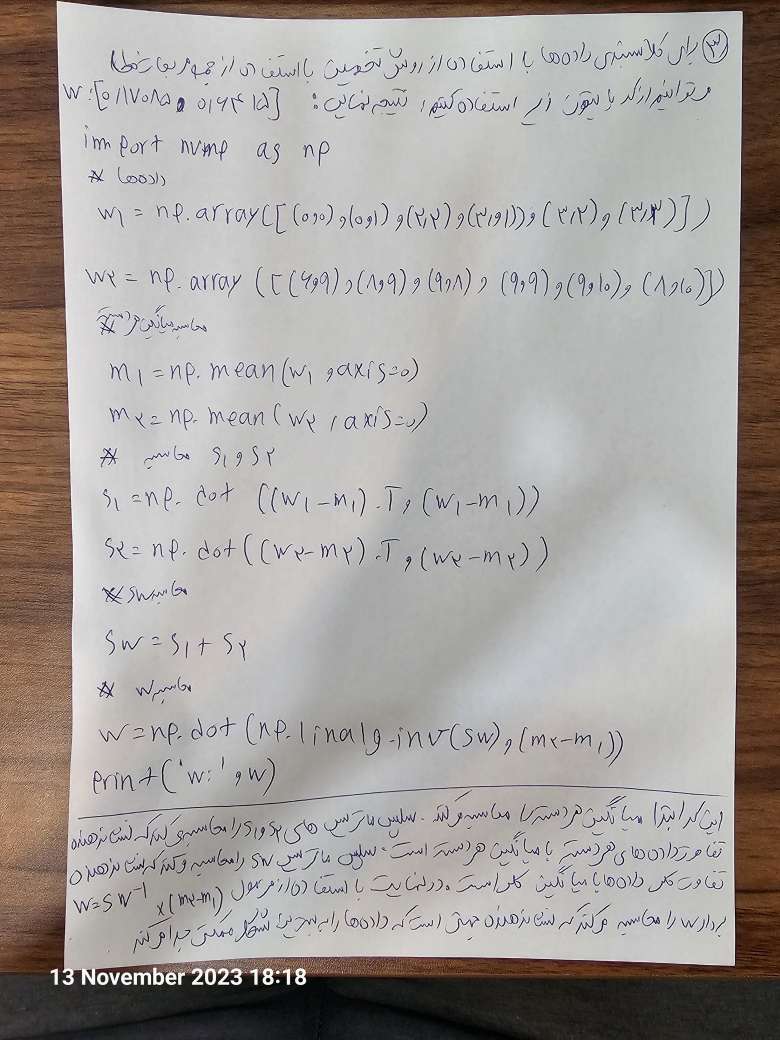 ۳) برای کلاسبندی داده‌ها با استفاده از روش تخمین با استفاده از جمع مربعات خطا
می‌توانیم از کد پایتون زیر استفاده کنیم، نتیجه نهایی: w:[۰٫۱۷۰۸۵ ۰٫۶۴۱۵]
import nump as np
* داده‌ها
w۱ = np.array([(۰,۰),(۰,۱),(۲,۲),(۳,۱),(۳,۲),(۳,۳)])
w۲ = np.array([(۶,۹),(۸,۹),(۹,۸),(۹,۹),(۹,۱۰),(۸,۱۰)])
* محاسبه میانگین هر دسته
m۱ = np.mean(w۱,axis=۰)
m۲ = np.mean(w۲,axis=۰)
* محاسبه s۱ و s۲
s۱ = np.dot((w۱-m۱).T,(w۱-m۱))
s۲ = np.dot((w۲-m۲).T,(w۲-m۲))
* محاسبه sw
sw = s۱ + s۲
* محاسبه w
w = np.dot(np.linalg.inv(sw),(m۲-m۱))
print('w:',w)
این کد ابتدا میانگین هر دسته را محاسبه می‌کند. سپس ماتریس های s۱ و s۲ را محاسبه می‌کند که نشان‌دهنده
تفاوت داده‌های هر دسته با میانگین هر دسته است. سپس ماتریس sw را محاسبه می‌کند که نشان‌دهنده
تفاوت کل داده‌ها با میانگین کل است. در نهایت با استفاده از فرمول w=sw⁻¹ ×(m۲-m۱)
بردار w را محاسبه می‌کند که نشان‌دهنده جهتی است که داده‌ها را به بهترین شکل ممکن جدا می‌کند
13 November 2023 18:18